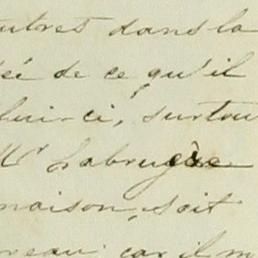 autres dans la
ée de ce qu'il
lui-ci, surtou
Mr Labrugère
maison, soit
car il m